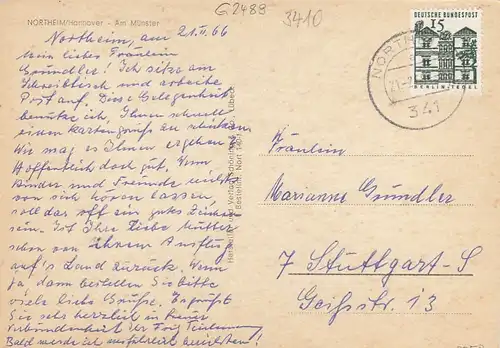 NORTHEIM/Hannover - Am Münster
G2489
3410
Northeim, am 21.II.66
Mein liebes Fräulein
Gündler! Ich sitze am
Schreibtisch und arbeite
Post auf. Diese Gelegenheit
benutze ich, Ihnen schnell
einen Kartengruss zu schicken.
Wie mag es Ihnen ergehen?
Hoffentlich doch gut. Wenn
Kinder und Freunde nichts
von sich hören lassen,
soll das oft ein gutes Zeichen
sein. Ist Ihre liebe Mutter
schon von ihrem Ausflug
auf's Land zurück. Wenn
ja, dann bestellen Sie bitte
viele liebe Grüße. Es grüßt
Sie sehr herzlich in treuer
Verbundenheit Ihr
Bald werde ich ausführlich berichten!
DEUTSCHE BUNDESPOST
15
BERLIN-TEGEL
341
Fräulein
Marianne Gündler
7 Stuttgart-S
Geißstr. 13